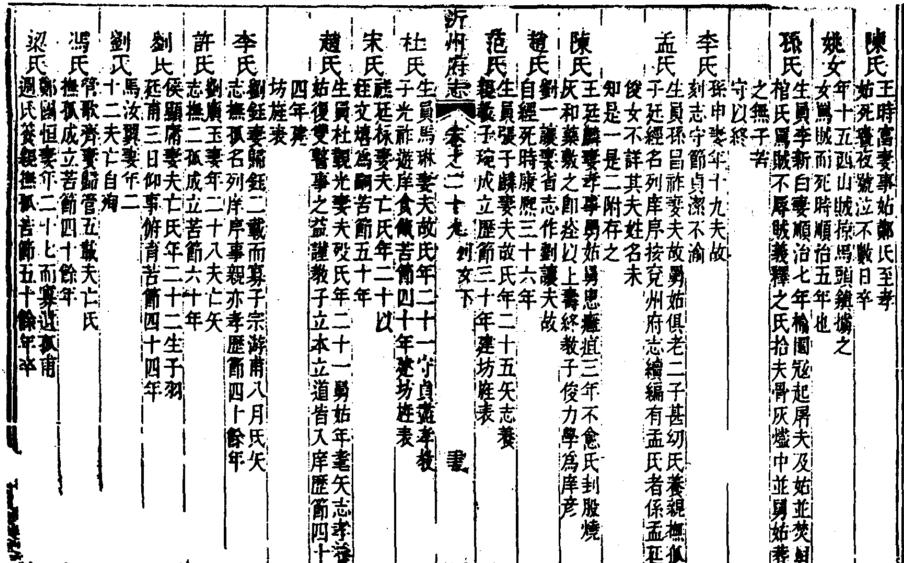 陳氏
王時富妻事姑鄭氏至孝
姑死晝夜號泣不數日卒
姚女
年十五西山賊掠馬頭鎮擄之
女罵賊而死時順治五年也
孫氏
生員李新白妻順治七年榆園寇起屠夫及姑並焚
棺氏罵賊不辱賊義釋之氏拾夫骨灰燼中並舅姑葬
之無子苦
守以終
李氏
孫申妻年十九夫故
刻志守節貞潔不渝
孟氏
生員孫昌祚妻夫故舅姑俱老二子甚幼氏養親撫孤
子廷經名列庠序按兗州府志續編有孟氏者係孟廷
俊女不詳其夫姓名未
知是一是二附存之
陳氏
王廷麟妻孝事舅姑舅患癰疽三年不愈氏刲股燒
灰和藥敷之即痊以上壽終教子俊力學為庠彥
趙氏
劉一讓妻省志作劉讓夫故
自經死時康熙三十六年
范氏
生員張子麟妻夫故氏年二十五矢志養
親教子琬成立歷節三十年建坊旌表
沂州府志 卷之二十九 列女下
杜氏
生員馬琳妻夫故氏年二十一守貞盡孝教
子光祚遊庠食餼苦節四十年建坊旌表
宋氏
莊廷祿妻夫亡氏年二十以
姪文熺為嗣苦節五十年
趙氏
生員杜觀光妻夫歿氏年二十一舅姑年耄矢志孝養
姑復雙瞽事之益謹教子立本立道皆入庠歷節四十
四年建
坊旌表
李氏
劉鈺妻歸鈺二載而寡子宗游甫八月氏矢
志撫孤名列庠序事親亦孝歷節四十餘年
許氏
劉廣玉妻年二十八夫亡矢
志撫二孤成立苦節六十年
劉氏
侯顯席妻夫亡氏年二十二生子羽
廷甫三日仰事俯育苦節四十四年
劉氏
馬汝翼妻年二
十二夫亡自洵
馮氏
管歌齊妻歸管五載夫亡氏
撫孤成立苦節四十餘年
梁氏
鄭國恒妻年二十七而寡遺孤甫
週氏養親撫孤苦節五十餘年卒